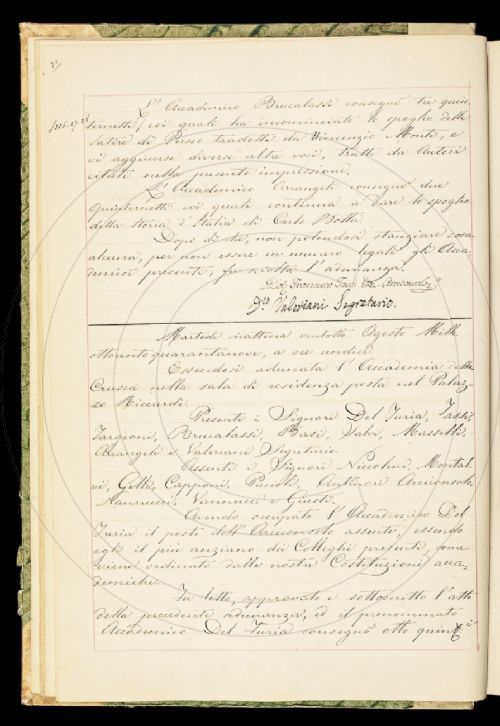 L'Accademico Brucalassi consegnò tre quin
ternetti, coi quali ha incominciato lo spoglio delle
satire di Persio tradotte da Vincenzio Monti, e
vi aggiunse diverse altre voci, tratte da Autori
citati nella presente impressione.
L'Accademico Arcangeli consegnò due
quinternetti coi quali continua a dare lo spoglio
della storia d'Italia di Carlo Botta.
Dopo di che, non potendosi stanziare cosa
alcuna, per non essere in numero legale gli Acca-
demici presenti, fu sciolta l'adunanza.
Francesco
Valeriani Segretario.
Martedì mattina ventotto Agosto Mille
ottocentoquarantanove, a ore undici.
Essendosi adunata l'Accademia della
Crusca nella sala di residenza posta nel Palaz-
zo Riccardi.
Presenti i Signori Del Furia, Tassi,
Targioni, Brucalassi, Basi, Salvi, Masselli,
Arcangeli e Valeriani Segretario.
Assenti i Signori Niccolini, Montal
vi, Gelli, Capponi, Puccioli, Arciconsolo
Nannucci, Vannucci e Giusti.
Avendo occupato l'Accademico Del
Furia il posto dell'Arciconsolo assente, essendo
egli il più anziano dei Colleghi presenti, come
viene ordinato dalle nostre Costituzioni acca-
demiche.
Fu letto, approvato e sottoscritto l'atto
della precedente adunanza, ed il prenominato
Accademico Del Furia consegnò otto quint